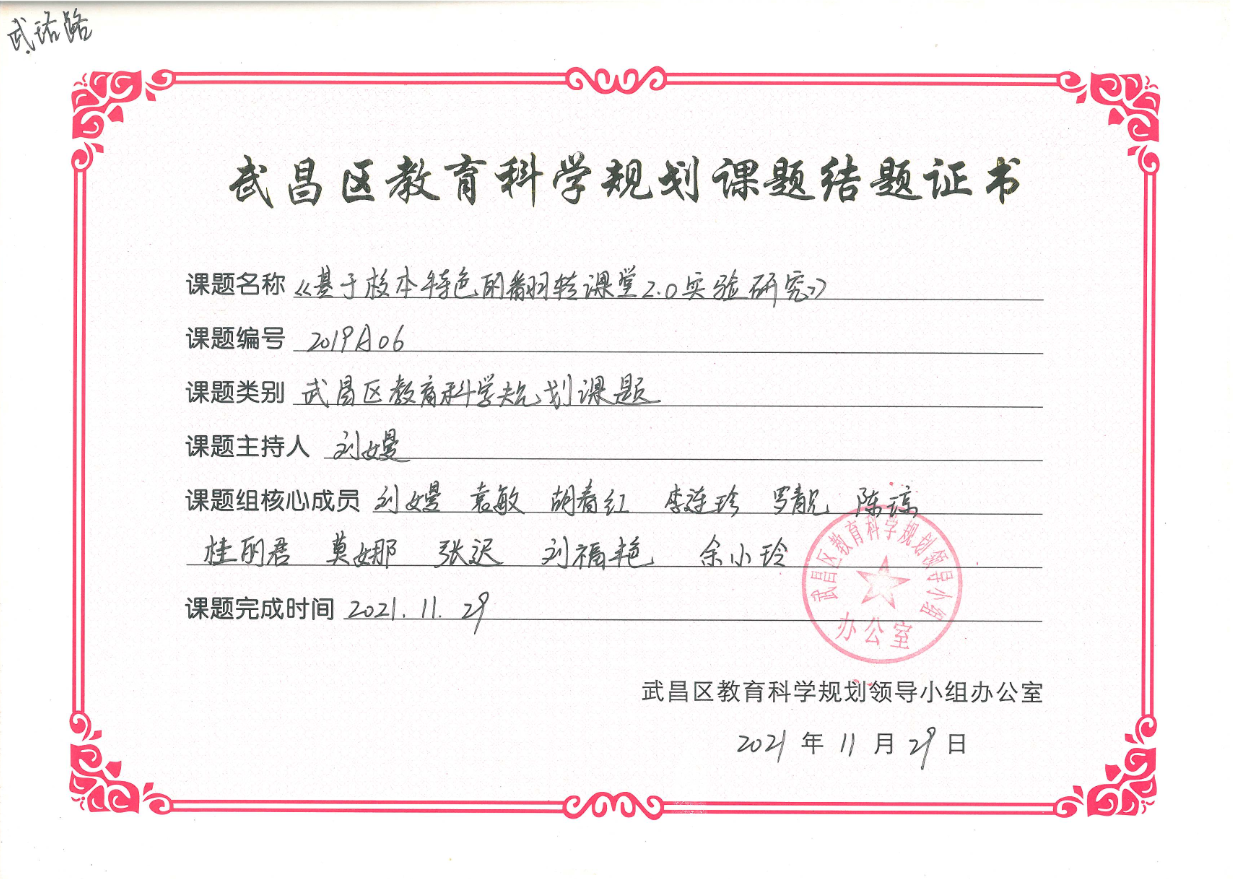 武珞路
武昌区教育科学规划课题结题证书
课题名称 《基于校本特色的翻转课堂2.0实验研究》
课题编号 2019A06
课题类别 武昌区教育科学规划课题
课题主持人 刘嫚
课题组核心成员 刘嫚 袁敏 胡春红 李连珍 罗靓 陈琼
桂丽君 莫娜 张迟 刘福艳 余小玲
课题完成时间 2021.11.29
武昌区教育科学规划领导小组
办公室
武昌区教育科学规划领导小组办公室
2021 年 11 月 29 日